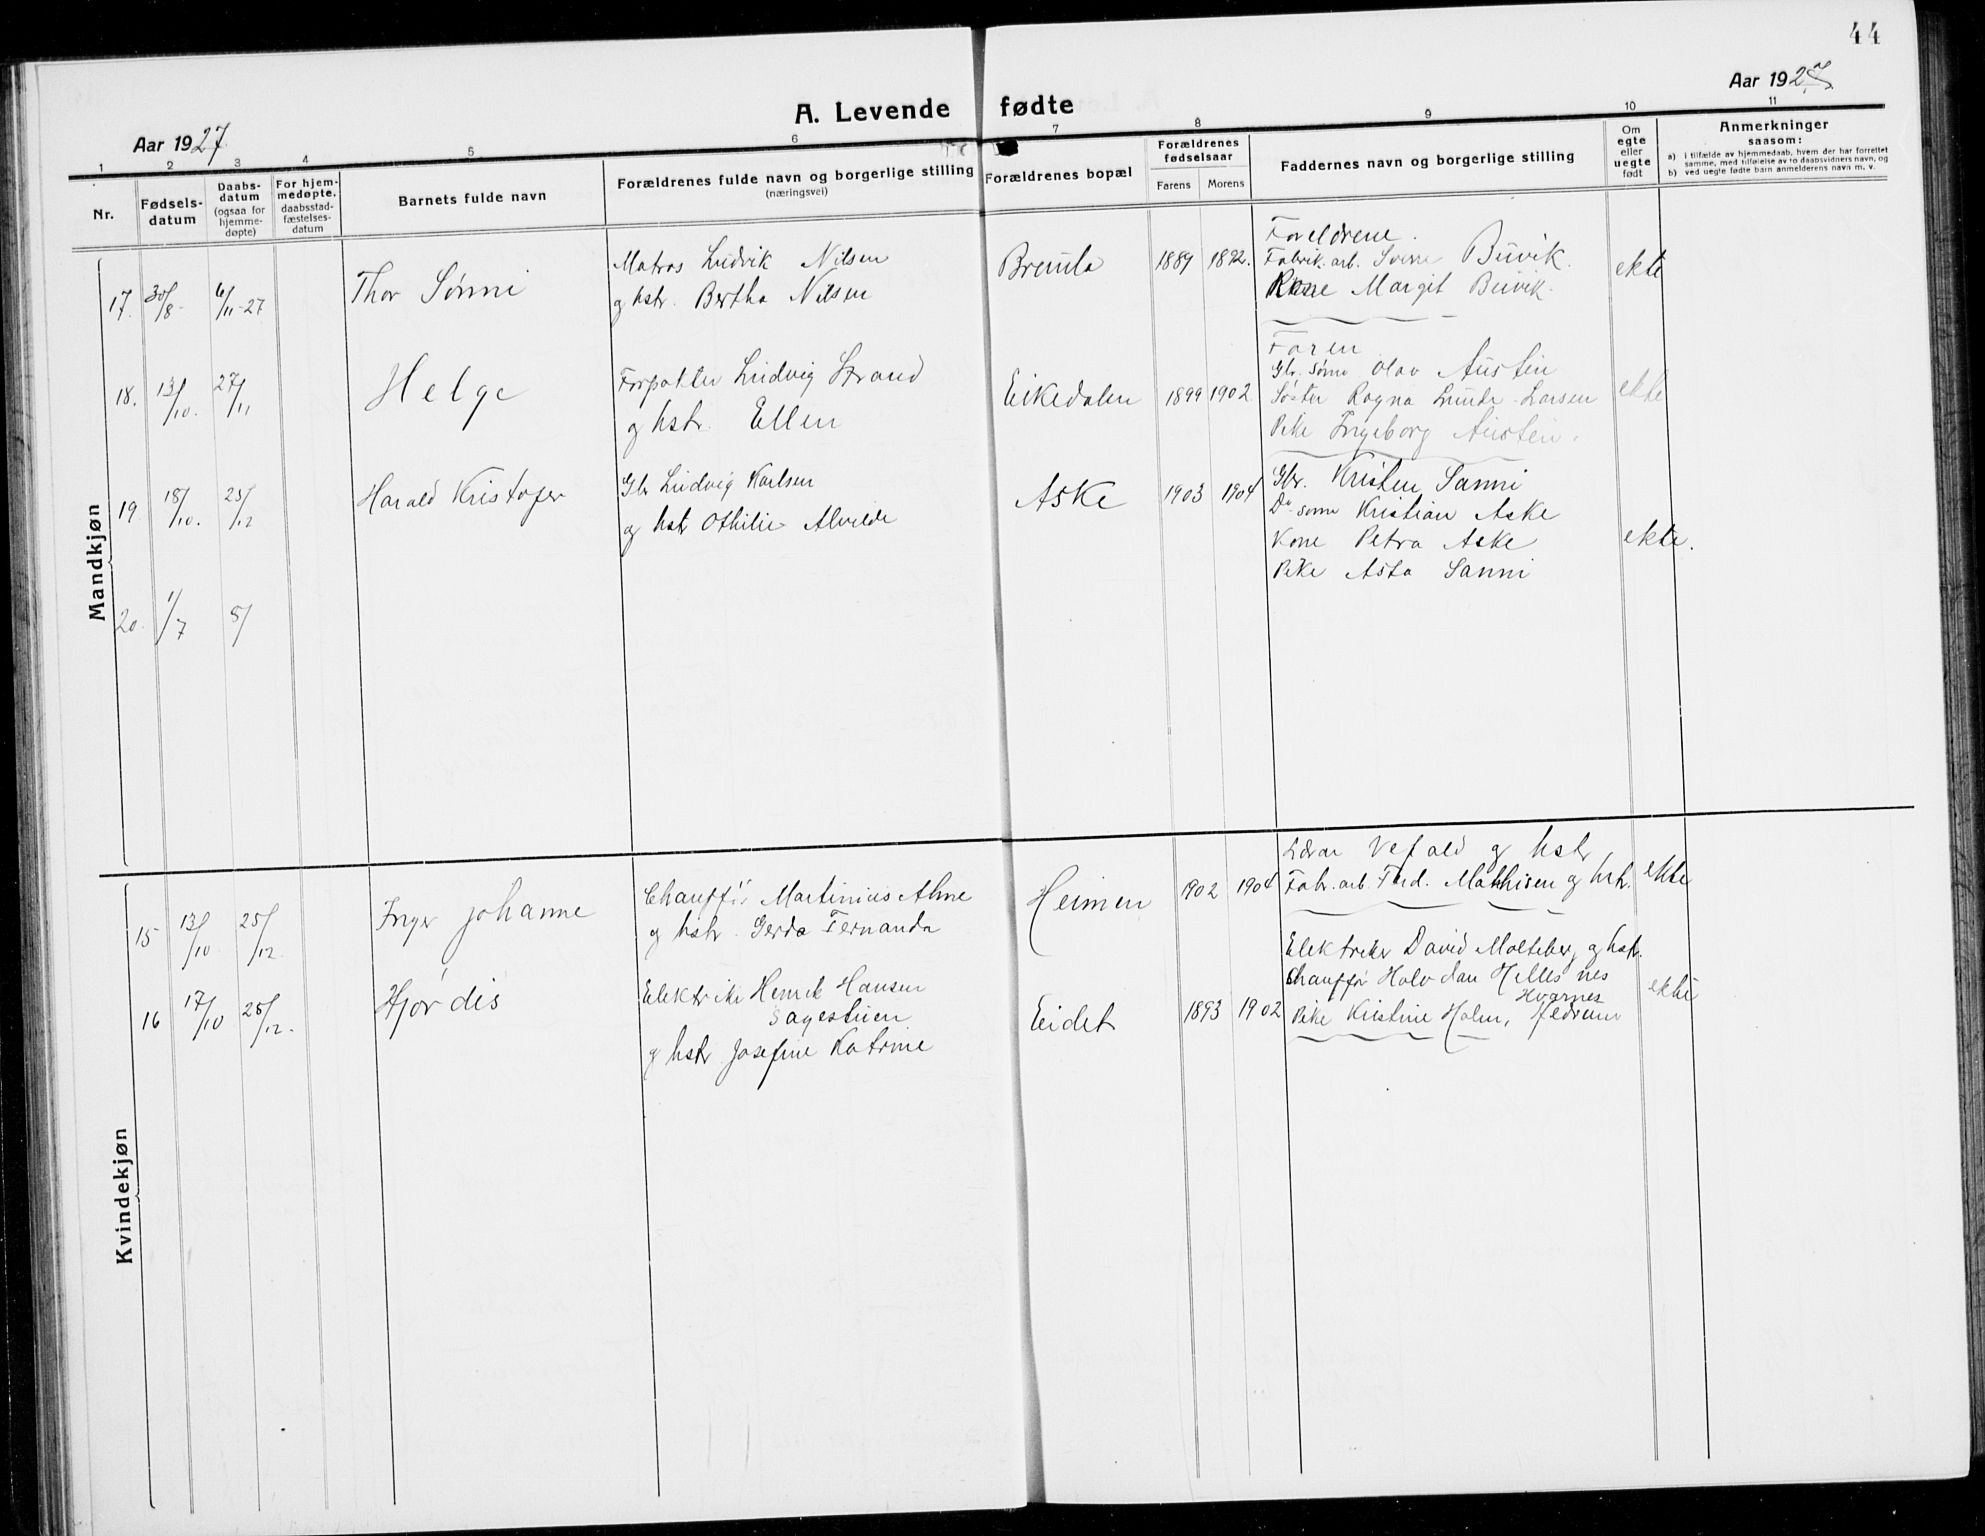 44
A. Levende fødte
Aar 1927.
Aar 1927
1 2 3 4 5 6 7 8 9 10 11
Nr.
Fødsels-
datum
Daabs-
datum
(ogsaa for
hjemme-
døpte)
For hjem-
medøpte.
daabsstad-
fæstelses-
datum
Barnets fulde navn
Forældrenes fulde navn og borgerlige stilling
(næringsvei)
Forældrenes bopæl
Forældrenes
fødselsaar
Farens Morens
Faddernes navn og borgerlige stilling
Om
egte
eller
uegte
født
Anmerkninger
saasom:
a) i tilfælde av hjemmedaab, hvem der har forrettet
samme, med tilføielse av to daabsvidners navn, og
b) ved uegte fødte barn anmelderens navn m. v.
Mandkjøn
17. 30/8 6/11-27 Thor Sønni
Matros Ludvik Nilsen
og hstr. Bertha Nilsen
Bremla 1889 1892.
Foreldrene.
Fabrik. arb. Buvik.
Margit Buvik.
ekte
18. 13/10. 27/11 Helge
Ludvig Strand
og hstr. Ellen
Eikedalen 1899 1902.
Faren
Gbr. sønn Olav Austein
Søster Ragna Lunde-Larsen
Pike Ingeborg Austein.
ekte
19 18/10. 25/12 Harald Kristofer
Gbr Ludvig Karlsen
og hstr Othilie Alvilde
Aske 1903 1904
Gbr. Kristen Sanni
Do sønn Kristian Aske
Kone Petra Aske
Pike Asta Sanni
ekte.
20. 1/7 5/
Kvindekjøn
15 13/10 25/12. Inger Johanne
Chauffør Martinius Alme
og hstr. Gerda Fernanda
Heimen 1902 1904
Lærer Vefald og hstr
Fabr. arb. Ferd. Mathisen og hstr.
ekte
16 17/10 25/12. Hjørdis
Elektriker Henrik Hansen
Sagestuen
og hstr Josefine Katrine
Eidet 1893 1902
Elektriker David Molteberg og hstr.
Chauffør Halvdan Hillesnes
Hvarnes
Pike Kristine Holm, Hedrum
ekte